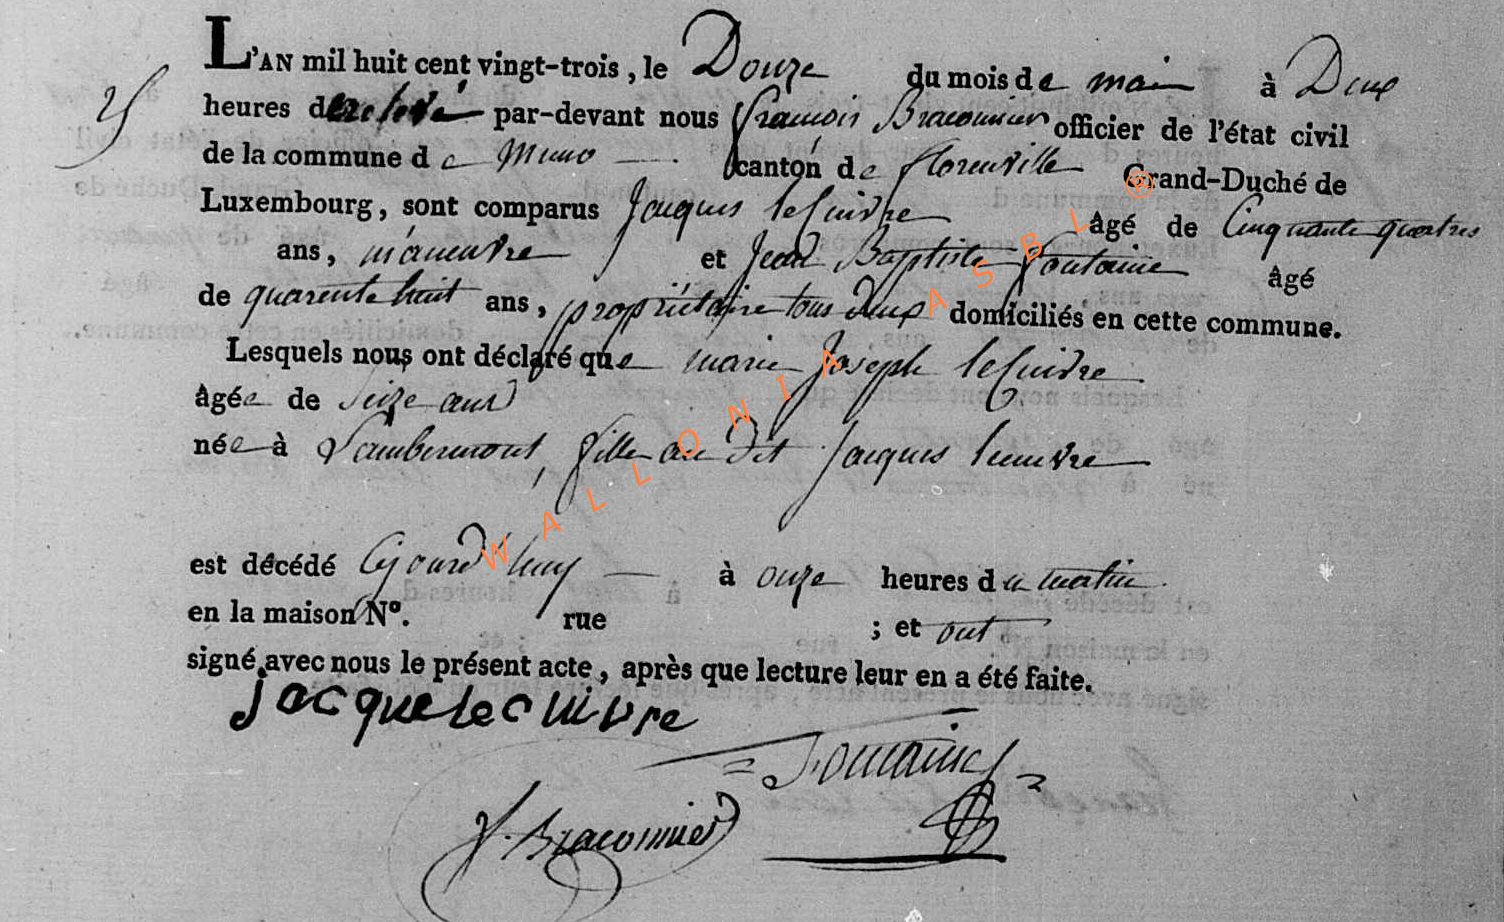 L'AN mil huit cent vingt-trois, le Douze du mois de mai à Deux
heures de relevé par-devant nous françois Braconnier officier de l'état civil
de la commune de Muno canton de florenville Grand-Duché de
Luxembourg, sont comparus Jacques leCuivre âgé de Cinquante quatres
ans, maneuvre et Jean Baptiste fontaine âgé
de quarente huit ans, propriétaire tous deux domiciliés en cette commune.
Lesquels nous ont déclaré que marie Joseph leCuivre
âgée de Seize ans
née à Lambermont, fille au dit Jacques lecuivre
est décédé Cejourd'huy à onze heures du matin
en la maison Nº. rue ; et ont
signé avec nous le présent acte, après que lecture leur en a été faite.
jacque lecuivre
fontaine
f. Braconnier
WALLONIA ASBL @